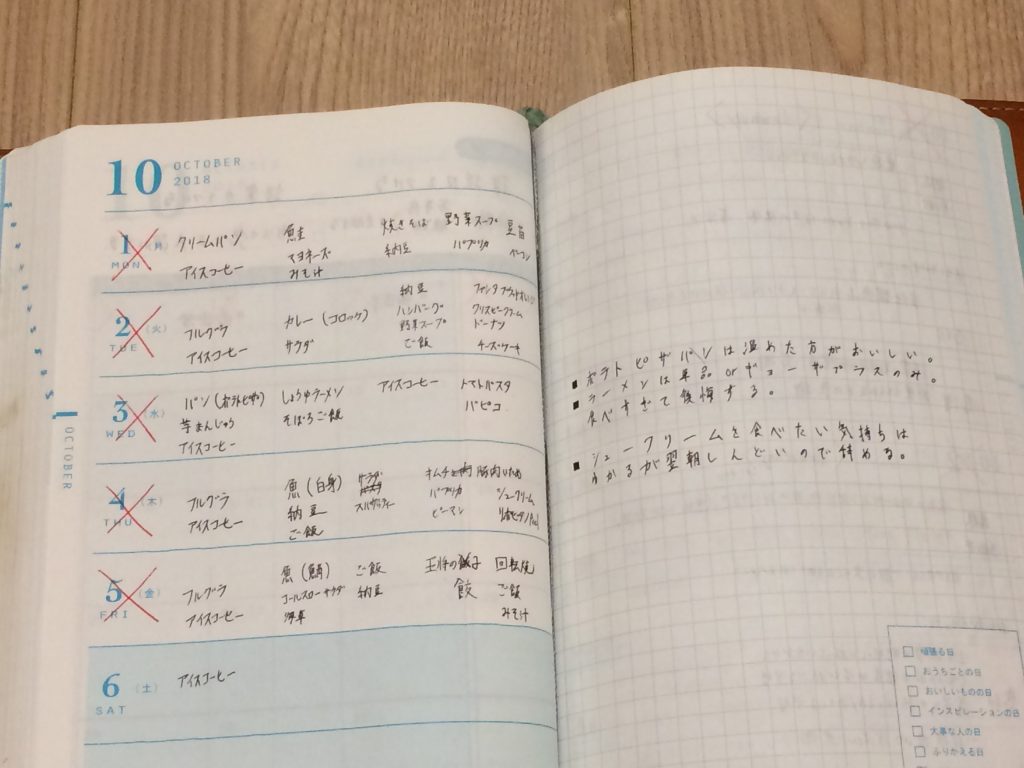 10 OCTOBER
2018
1 月
MON
クリームパン
アイスコーヒー
鮭
マヨネーズ
みそ汁
焼きそば 野菜スープ 豆苗
納豆 パプリカ ベーコン
2 (火)
TUE
フルグラ
アイスコーヒー
カレー (コロッケ)
サラダ
納豆
ハンバーグ
野菜スープ
ご飯
クリスピークリーム
ドーナツ
チーズケーキ
3 (水)
WED
パン (ポテトピザ)
芋まんじゅう
アイスコーヒー
しょうゆラーメン
そぼろご飯
アイスコーヒー
トマトパスタ
パピコ
4 (木)
THU
フルグラ
アイスコーヒー
魚 (白身)
納豆
ご飯
サラダ
スパゲッティー
キムチと豚肉いため
パプリカ
ピーマン
シュークリーム
5 (金)
FRI
フルグラ
アイスコーヒー
魚 (鯖) ご飯
コールスローサラダ 納豆
王将の餃子 回鍋肉
餃 ご飯
みそ汁
6 (土)
SAT
アイスコーヒー
OCTOBER
■ ポテトピザパンは温めた方がおいしい。
■ ラーメンは単品 or ギョーザプラスのみ。
食べすぎて後悔する。
■ シュークリームを食べたい気持ちは
わかるが翌朝しんどいので辞める。
□ 頑張る日
□ おうちごとの日
□ おいしいものの日
□ インスピレーションの日
□ 大事な人の日
□ ふりかえる日